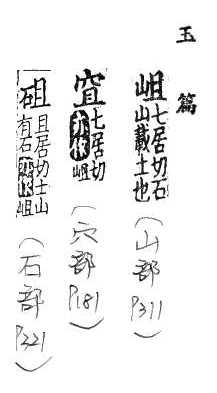 玉篇
岨七居切石山載土也(山部P311)
七居切亦作岨(穴部P181)
砠且居切土山有石亦作岨(石部P321)